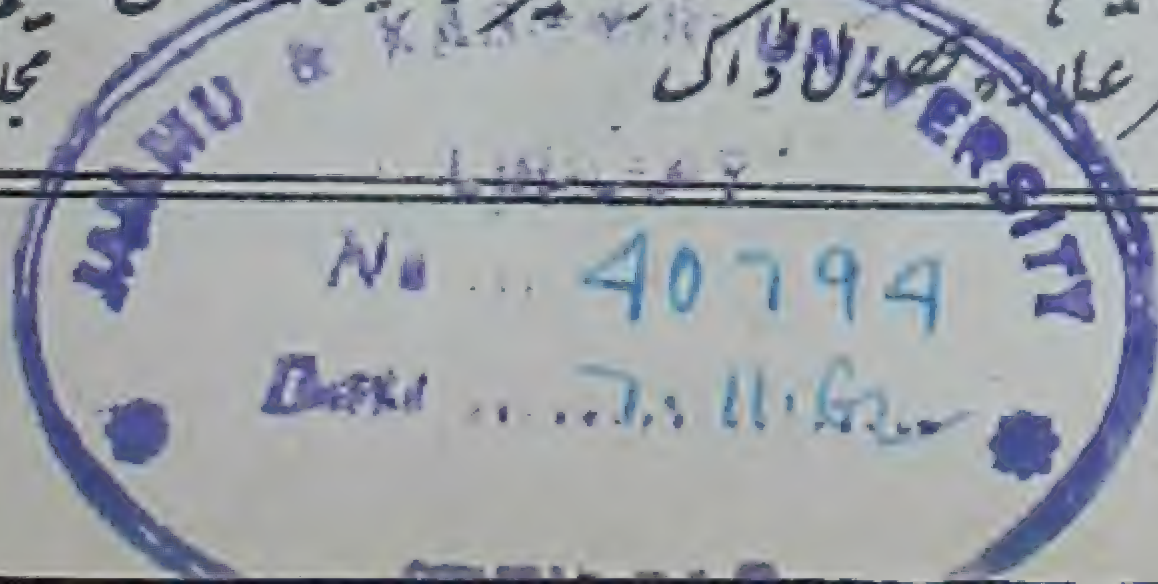 علاوہ محصول ڈاک
JAMMU & KASHMIR UNIVERSITY
LIBRARY
No ... 40794
Dated ....... 7.11.62